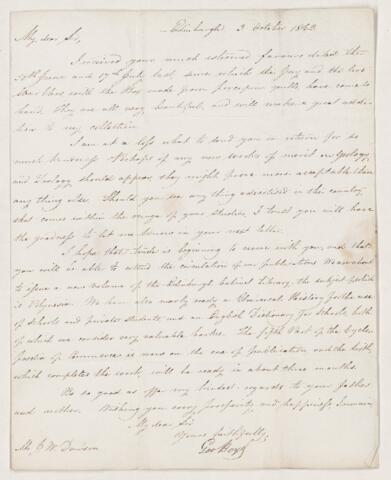 Edinburgh 3 October 1842
My dear Sir,
I received your much esteemed favours dated the
30th June and 17th July last, since which the Jay and the two
with the Box made from porcupine quills have come to
hand. They are all very beautiful, and will make a great addi-
tion to my collection.
I am at a loss what to send you in return for so
much kindness. Perhaps if any new works of merit in Geology
and Zoology should appear, they might prove more acceptable than
any thing else. Should you see any thing advertised in this country
that comes within the range of your studies, I trust you will have
the goodness to let me know in your next letter.
I hope that trade is beginning to revive with you, and that
you will be able to extend the circulation of our publications. We are about
to issue a new volume of the Edinburgh Cabinet Library, the subject of which
is Polynesia. We have also nearly ready a Universal History for the use
of schools and private students, and an English Dictionary for Schools, both
of which we consider very valuable books. The fifth Part of the Cyclo-
paedia of Commerce is now on the eve of publication and the sixth,
which completes the work, will be ready in about three months.
Be so good as offer my kindest regards to your father
and mother. Wishing you every prosperity and happiness, I remain
My dear Sir
Yours faithfully,
Geo Boyd
Mr. J. W. Dawson